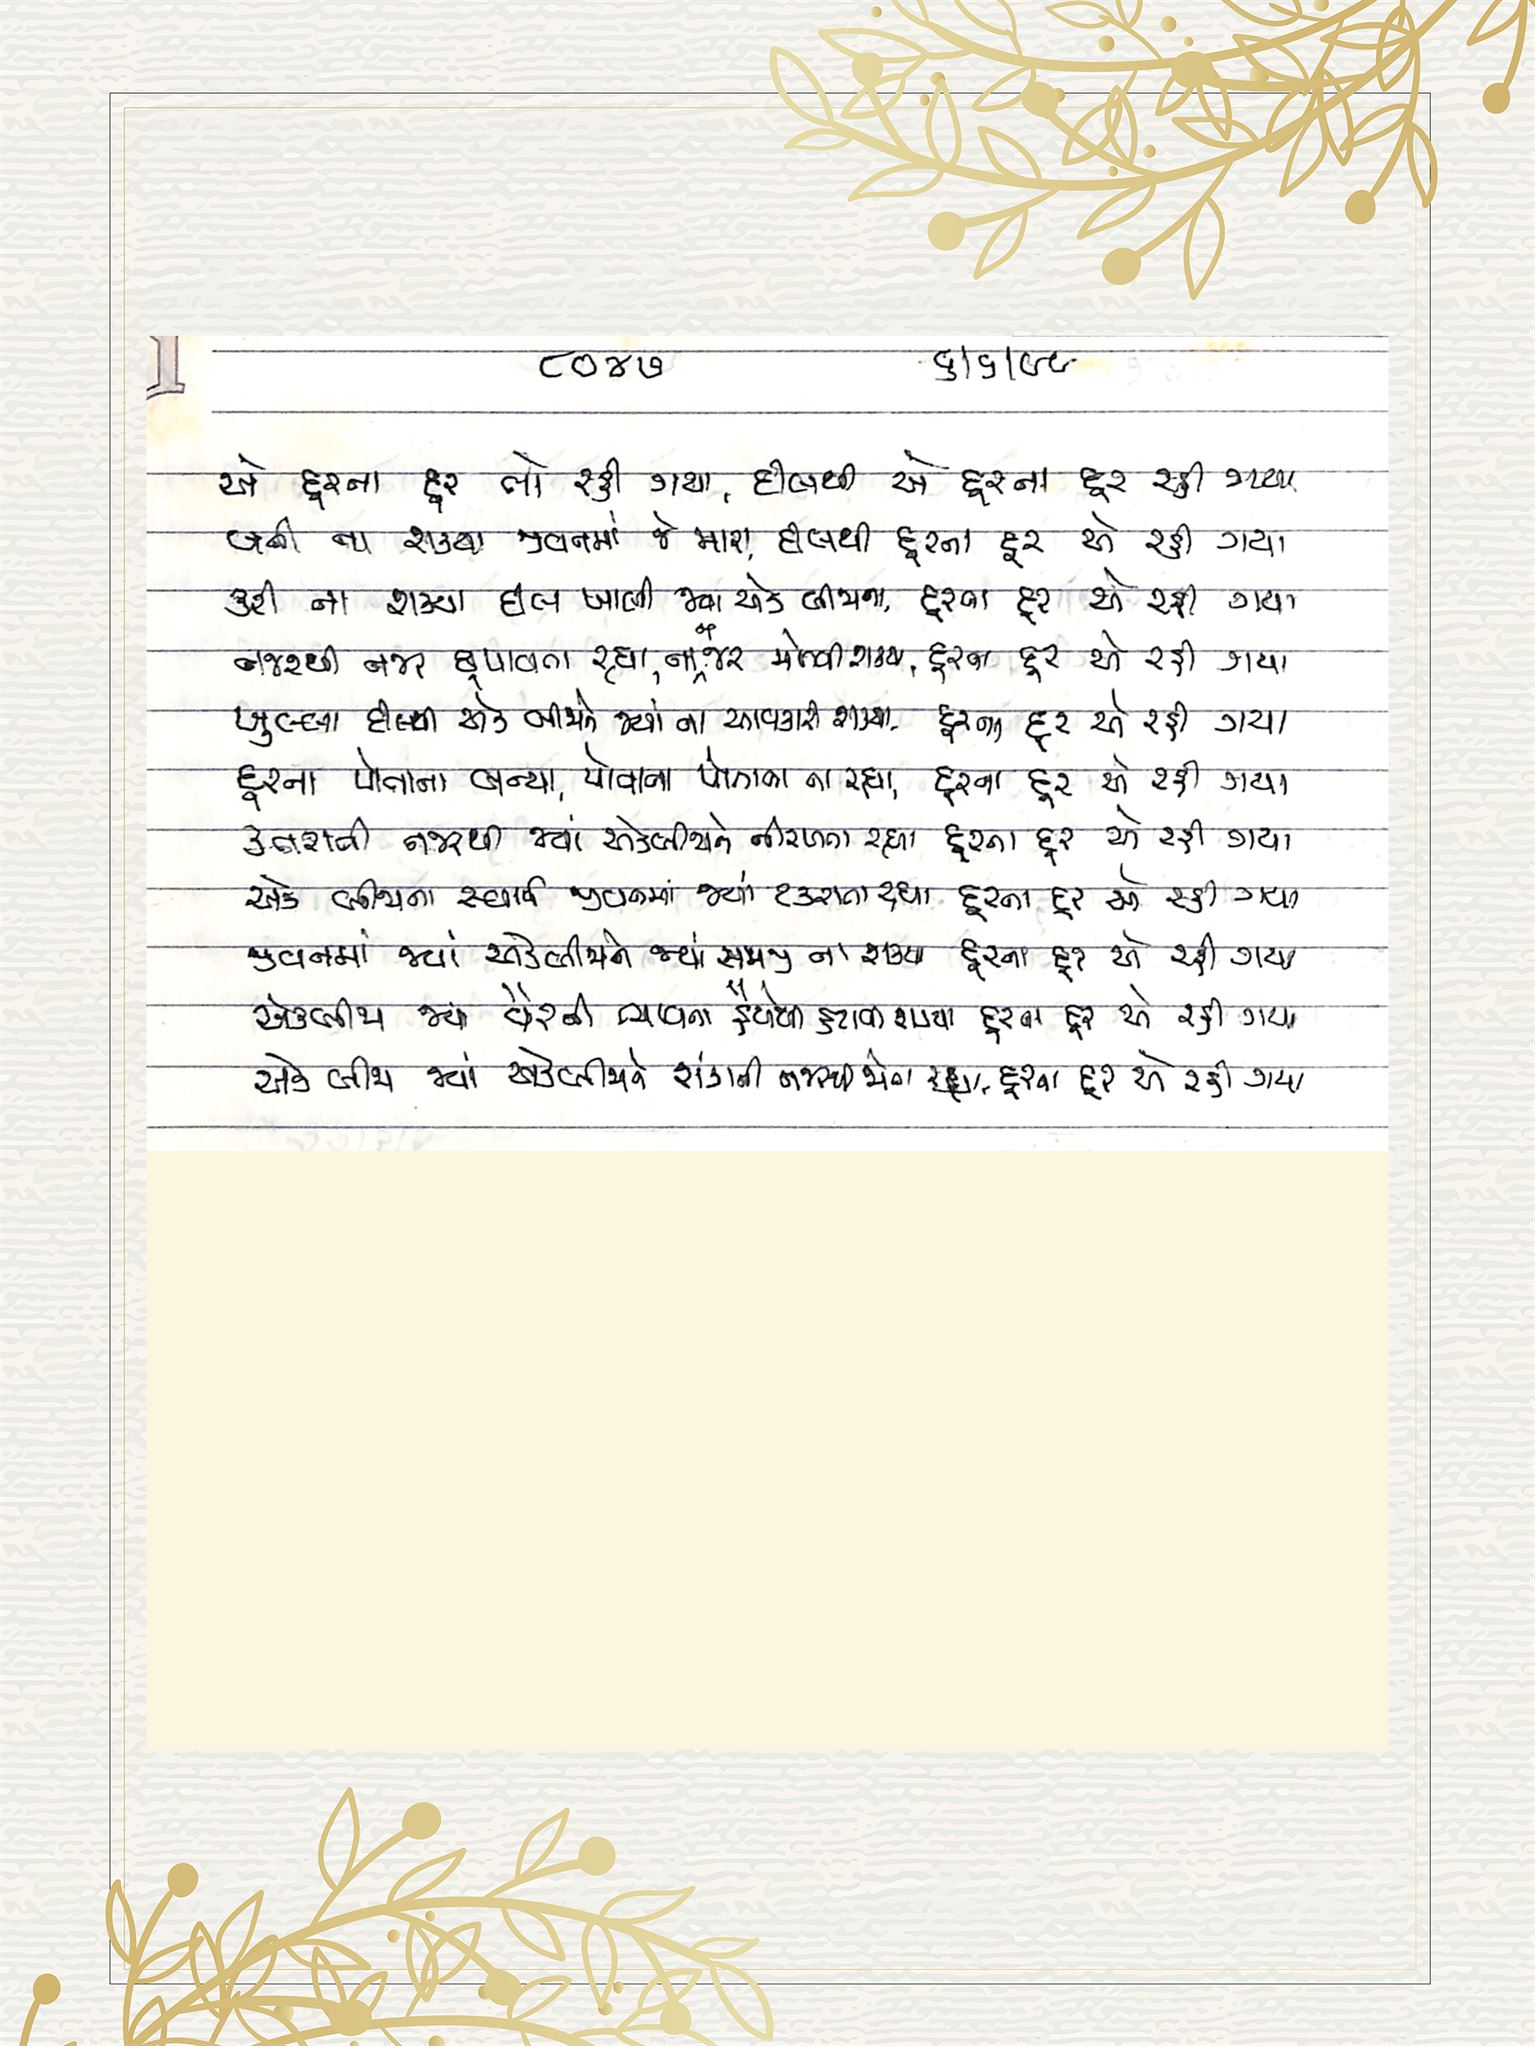 ૮૦૪૭ ૬/૬/૯૯
એ દૂરના દૂર તો રહી ગયા, દીલથી એ દૂરના દૂર રહી ગયા
બની ના શક્યા જીવનમાં જે મારા, દીલથી દૂરના દૂર એ રહી ગયા
કરી ના શક્યા દીલ ખાલી જ્યાં એક બીજાના, દૂરના દૂર એ રહી ગયા
નજરથી નજર છૂપાવતા રહ્યા, ના નજર મેળવી શક્યા, દૂરના દૂર એ રહી ગયા
ખુલ્લા દીલથી એક બીજાને જ્યાં ના આવકારી શક્યા, દૂરના દૂર એ રહી ગયા
દૂરના પોતાના બન્યા, પોતાના પોતાના ના રહ્યા, દૂરના દૂર એ રહી ગયા
કતરાતી નજરથી જ્યાં એકબીજાને નીરખતા રહ્યા દૂરના દૂર એ રહી ગયા
એક બીજાના સ્વાર્થ જીવનમાં જ્યાં ટકરાતા રહ્યા દૂરના દૂર એ રહી ગયા
જીવનમાં જ્યાં એકબીજાને જ્યાં સમજી ના શક્યા દૂરના દૂર એ રહી ગયા
એકબીજા જ્યાં વૈરની ભાવના હૈયેથી હટાવી શક્યા દૂરના દૂર એ રહી ગયા
એક બીજા જ્યાં એકબીજાને શંકાની નજરથી જોતા રહ્યા, દૂરના દૂર એ રહી ગયા